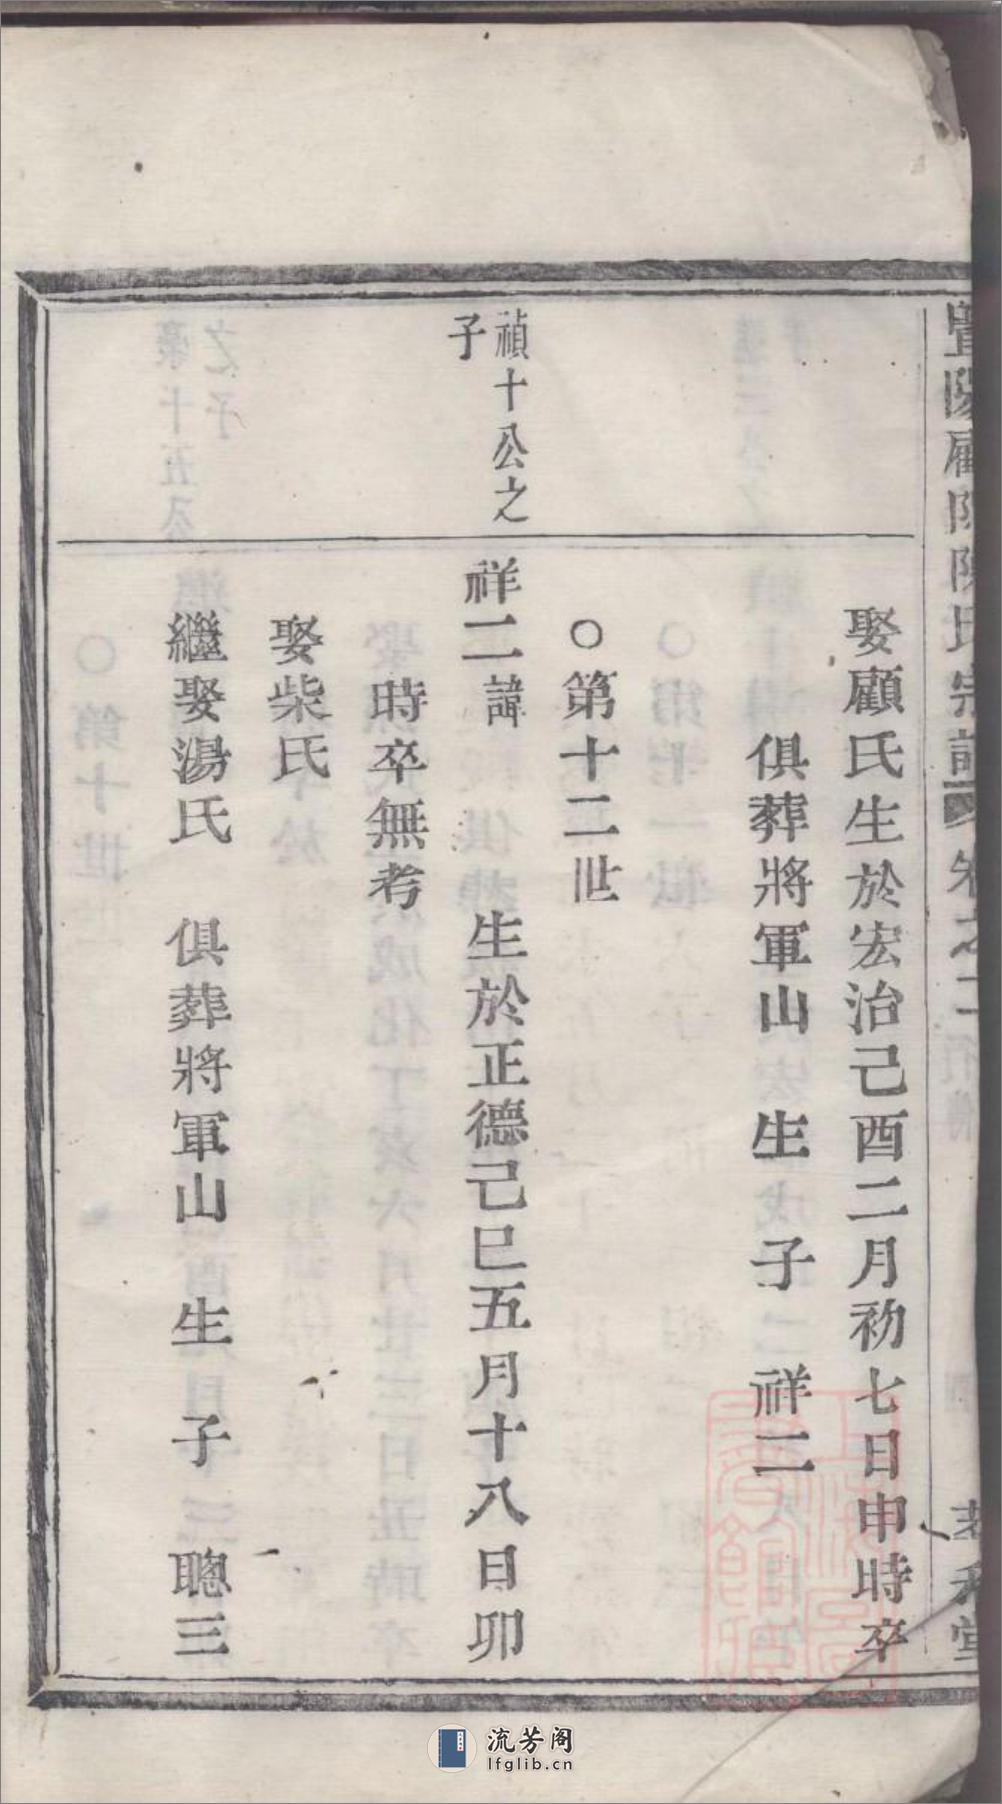 暨陽雇陳陳氏宗譜 卷之二 行傳
娶顧氏生於宏治己酉二月初七日申時卒
俱葬將軍山 生 子 祥二
○第十二世
禎十公之
子
祥二諱 生於正德己巳五月十八日卯
時卒無考
娶柴氏
繼娶湯氏 俱葬將軍山 生 子 聰三
流芳阁
lfglib.cn